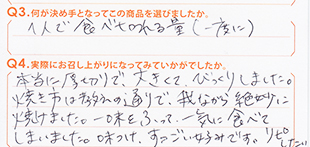 Q3.何が決め手となってこの商品を選びましたか。
1人で食べきれる量(一度に)
Q4.実際にお召し上がりになってみていかがでしたか。
本当に厚切りで、大きくて、びっくりしました。
焼き方は教えの通りで、我ながら絶妙に
焼けました。一味をふって、一気に食べて
しまいました。味つけ、すっごい好みです。リピしたい